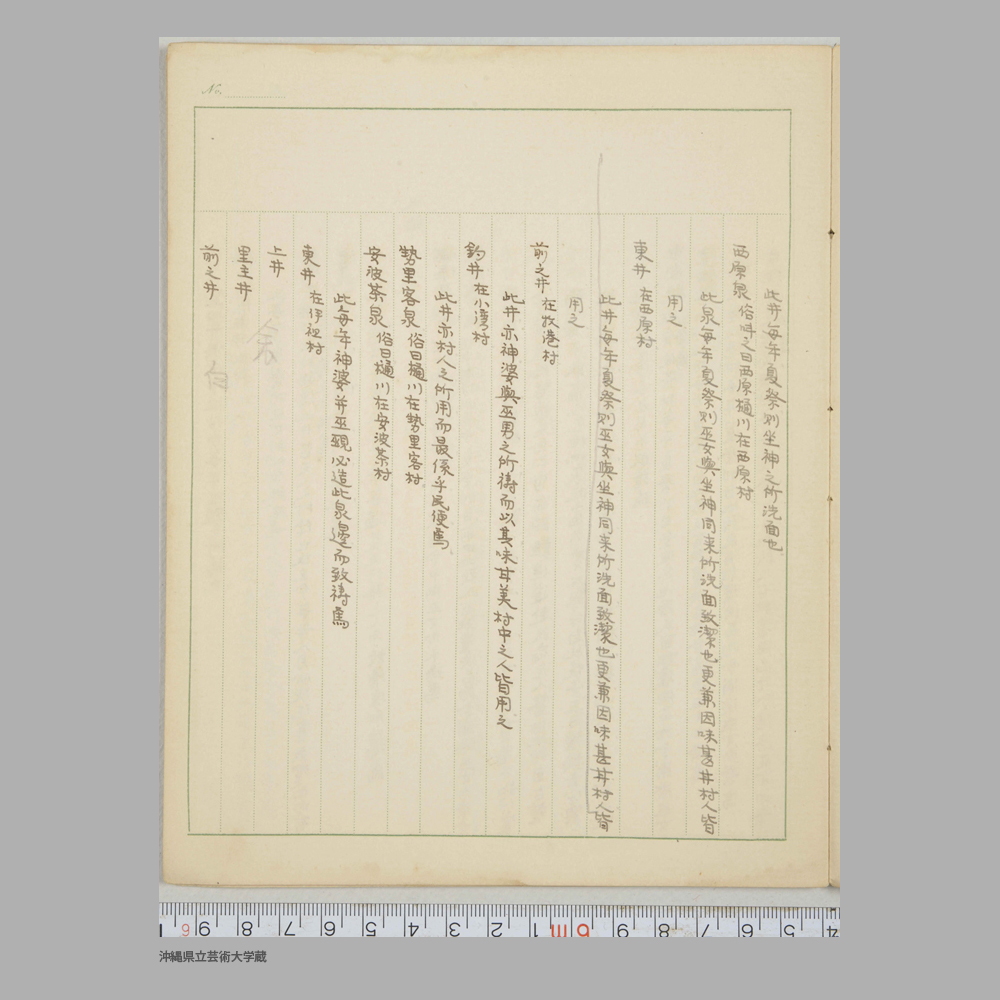 No.
此井每年夏祭則坐神之所洗面也
西原泉 俗呼之曰西原樋川在西原村
此泉每年夏祭則巫女與坐神同来所洗面致潔也更兼因味甚甘村人皆
用之
東井 在西原村
此井每年夏祭則巫女與坐神同来所洗面致潔也更兼因味甚甘村人皆
用之
前之井 在牧港村
此井亦神婆與巫男之所祷而以其味甘美村中之人皆用之
釣井 在小湾村
此井亦村人之所用而最係乎民便焉
勢里客泉 俗曰樋川在勢里客村
安波茶泉 俗曰樋川在安波茶村
此每年神婆并巫覡必造此泉邊而致祷焉
東井 在伊祖村
上井
里主井
前之井
沖縄県立芸術大学蔵
6 9 8 7 6 5 4 3 2 1 6m 9 8 7 6 5 4